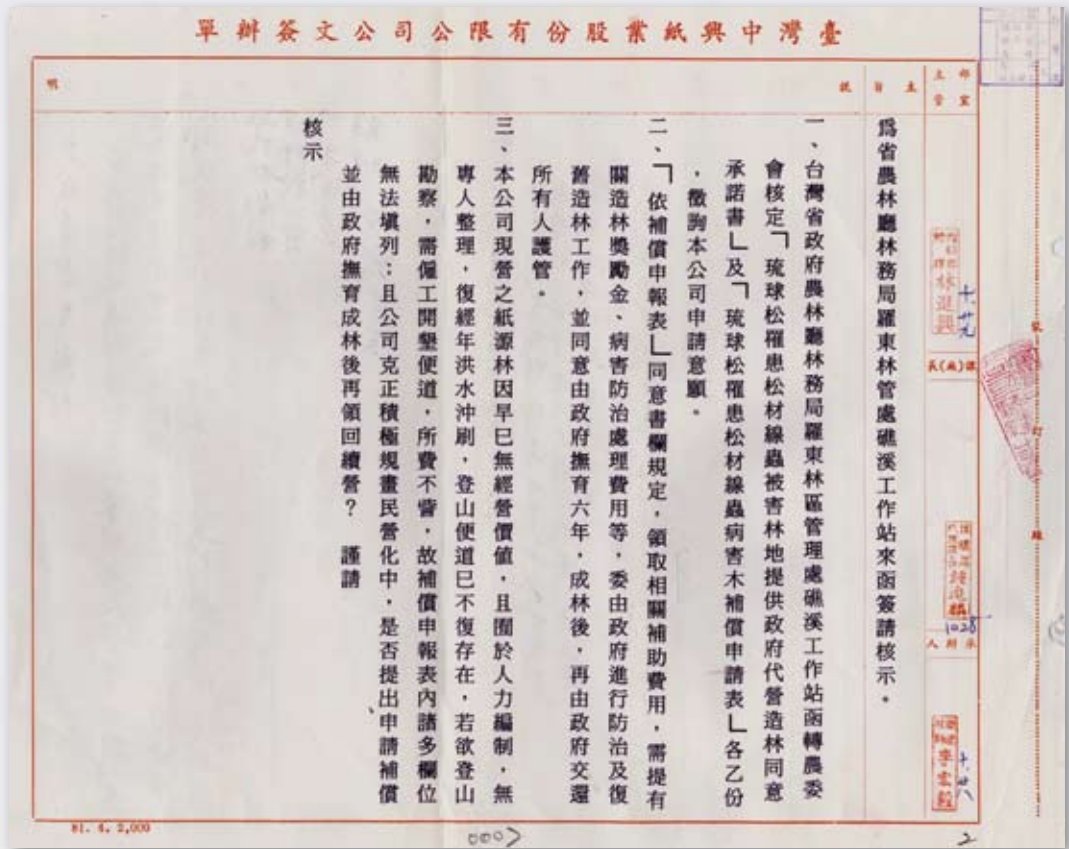 臺灣中興紙業股份有限公司公文簽辦單
部室
主管
主旨
說
明
為省農林廳林務局羅東林管處礁溪工作站來函簽請核示。
一、台灣省政府農林廳林務局羅東林區管理處礁溪工作站函轉農委
會核定「琉球松罹患松材線蟲被害林地提供政府代營造林同意
承諾書」及「琉球松罹患松材線蟲病害木補償申請表」各乙份
,徵詢本公司申請意願。
二、「依補償申報表」同意書欄規定,領取相關補助費用,需提有
關造林獎勵金、病害防治處理費用等,委由政府進行防治及復
舊造林工作,並同意由政府撫育六年,成林後,再由政府交還
所有人護管。
三、本公司現營之紙源林因早已無經營價值,且囿於人力編制,無
專人整理,復經年洪水沖刷,登山便道已不復存在,若欲登山
勘察,需僱工開墾便道,所費不貲,故補償申報表內諸多欄位
無法填列;且公司克正積極規畫民營化中,是否提出申請補償
並由政府撫育成林後再領回續營? 謹請
核示
林進興
十、廿九
課(廠)長
1028
承辦人
十、廿八
裝
訂
線
81. 6. 2,000
2